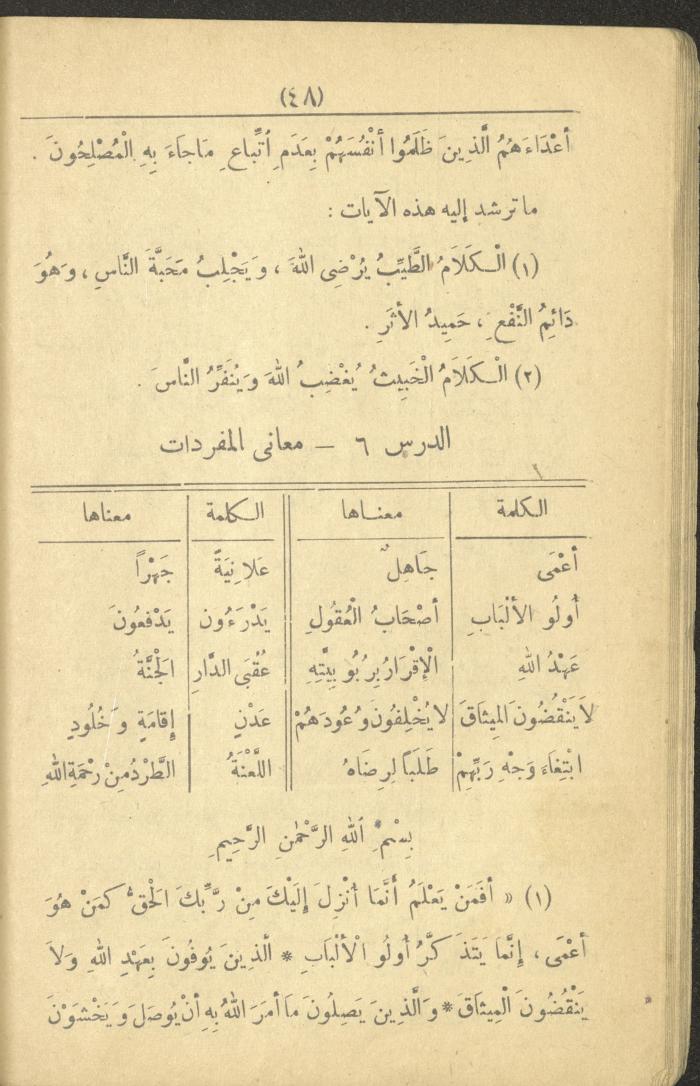 (٤٨)
أَعْدَاءَهُمُ الَّذِينَ ظَلَمُوا أَنْفُسَهُمْ بِعَدَمِ اُتِّبَاعِ مَاجَاءَ بِهِ الْمُصْلِحُونَ .
ما ترشد إليه هذه الآيات :
(١) الْكَلَامُ الطَّيِّبُ يُرْضِى اللهَ ، وَيَجْلِبُ مَحَبَّةَ النَّاسِ ، وَهُوَ
دَائِمُ النَّفْعِ ، حَمِيدُ الأَثَرِ .
(٢) الْكَلَامُ الْخَبِيثُ يُغْضِبُ اللهَ وَيُنَفِّرُ النَّاسَ .
الدرس ٦ – معانى المفردات
الكلمة معناها الكلمة معناها
أَعْمَى جَاهِلٌ عَلَانِيَةً جَهْرًا
أُولُو الأَلْبَابِ أَصْحَابُ الْعُقُولِ يَدْرَءُون يَدْفَعُونَ
عَهْدُ اللهِ الْإِقْرَارُ بِرُبُوبِيَّتِهِ عُقْبَى الدَّارِ الْجَنَّةُ
لَا يَنْقُضُونَ المِيثَاقَ لَا يُخْلِفُونَ وُعُودَهُمْ عَدْنٍ إِقَامَةٍ وَخُلُودٍ
ابْتِغَاءَ وَجْهِ رَبِّهِمْ طَلَبًا لِرِضَاهُ اللَّعْنَةُ الطَّرْدُ مِنْ رَحْمَةِ اللهِ
بِسْمِ اللهِ الرَّحْمٰنِ الرَّحِيمِ
(١) « أَفَمَنْ يَعْلَمُ أَنَّمَا أُنْزِلَ إِلَيْكَ مِنْ رَّبِّكَ الْحَقُّ كَمَنْ هُوَ
أَعْمَى ، إِنَّمَا يَتَذَكَّرُ أُولُو الْأَلْبَابِ * الَّذِينَ يُوفُونَ بِعَهْدِ اللهِ وَلَا
يَنْقُضُونَ الْمِيثَاقَ * وَالَّذِينَ يَصِلُونَ مَا أَمَرَ اللهُ بِهِ أَنْ يُوصَلَ وَيَخْشَوْنَ